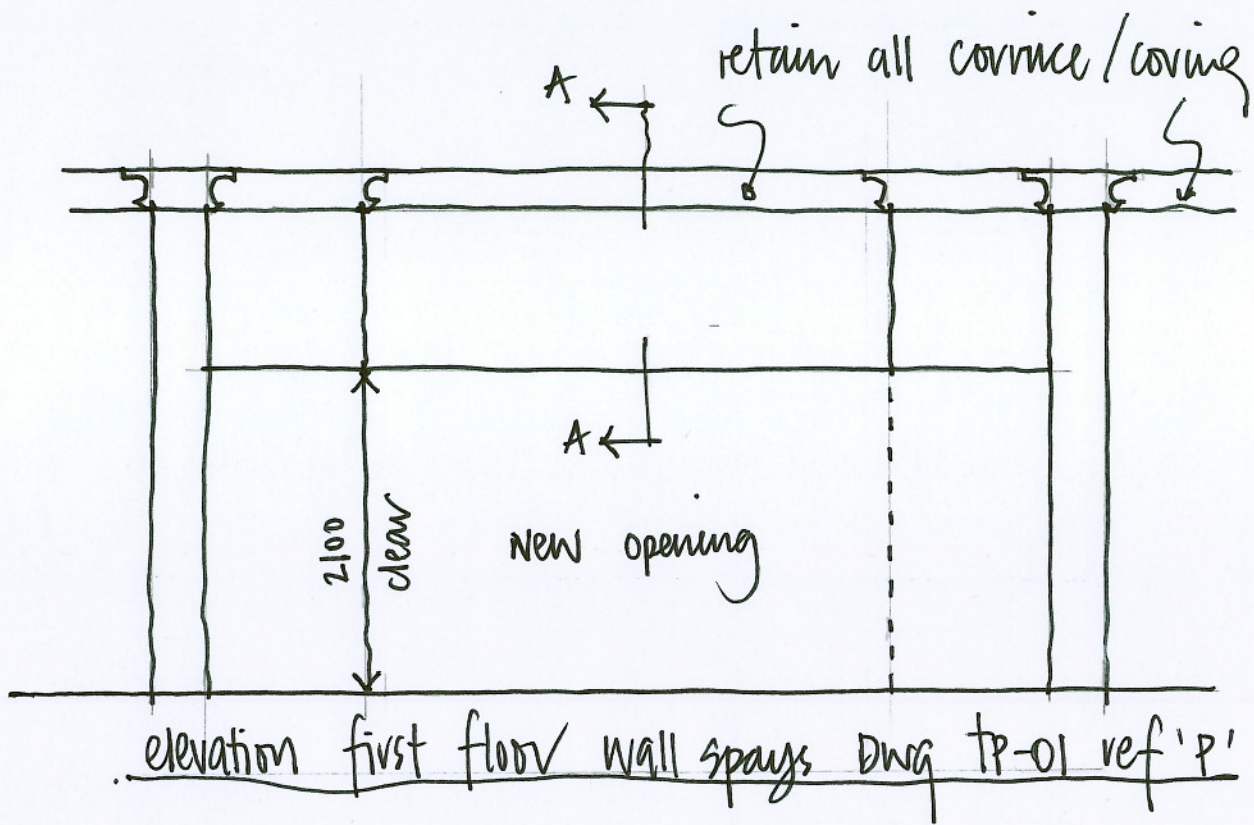 retain all cornice / coving
A
A
2100
clear
New opening
elevation first floor wall spays Dwg TP-01 ref 'P'